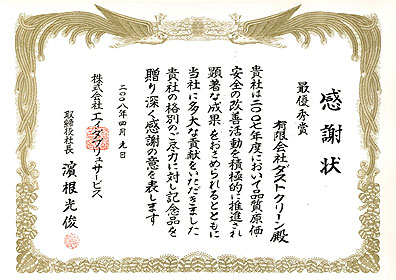 感謝状
最優秀賞
有限会社ダストクリーン殿
貴社は二〇〇七年度において品質原価・
安全の改善活動を積極的に推進され
顕著な成果をおさめられるとともに
当社に多大な貢献をいただきました
貴社の格別のご尽力に対し記念品を
贈り深く感謝の意を表します
二〇〇八年四月 九日
株式会社エイダブリュサービス
取締役社長 濱根光俊